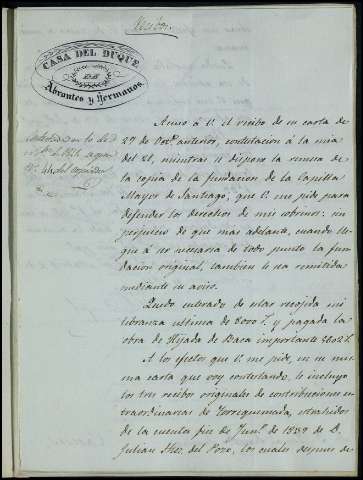 Recibo.
CASA DEL DUQUE
DE
Abrantes y Hermanos.
Acuso á V. el recibo de su carta de
27 de Oct.e anterior, contestacion á la mia
del 21, mientras se dispone la remesa de
la copia de la fundacion de la Capilla
Mayor de Santiago, que V. me pide para
defender los derechos de mis sobrinos: sin
perjuicio de que mas adelante, cuando lle-
gue á ser necesaria de todo punto la fun-
dacion original, tambien le sea remitida
mediante su aviso.
Quedo enterado de estar recojida mi
libranza ultima de 8000 r.s y pagada la
obra de Hijada de Baca importante
A los efectos que V. me pide, en su mis-
ma carta que voy contestando, le incluyo
los tres recibos originales de contribuciones es-
traordinarias de Torrequemada, estraidos
de la cuenta fin de Jun.o de 1839 de D.
Julian del Pozo, los cuales despues de